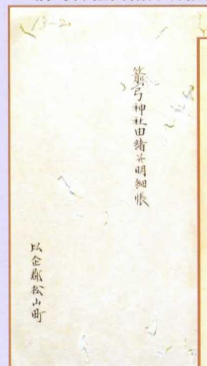 13-20
箭弓神社由緒并明細帳
比企郡松山町